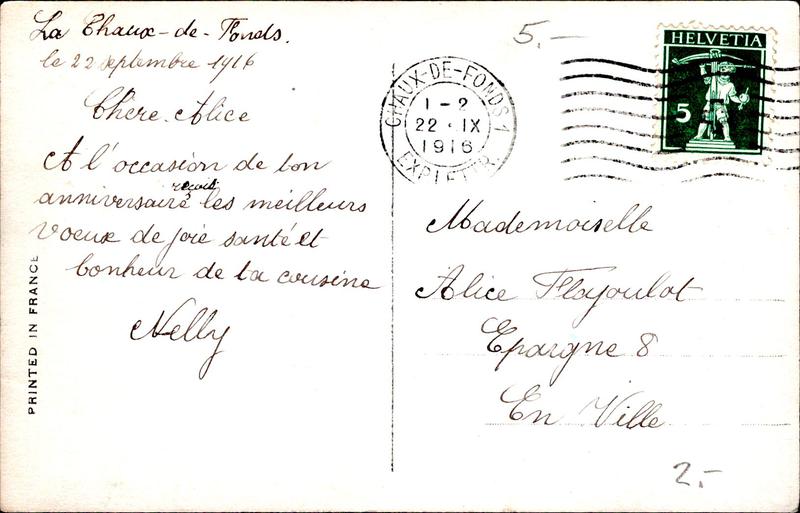 La Chaux-de-Fonds.
le 22 septembre 1916
Chère Alice
A l'occasion de ton
reçois
anniversaire les meilleurs
voeux de joie santé et
bonheur de ta cousine
Nelly
PRINTED IN FRANCE
5.–
CHAUX-DE-FONDS 1
1-2
22 · IX
1916
EXP. LETTR.
HELVETIA
5
Mademoiselle
Alice Flajoulot
Epargne 8
En Ville
2.-